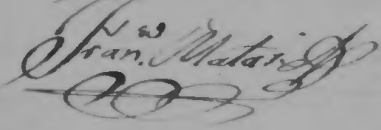 Fran.co Mataix